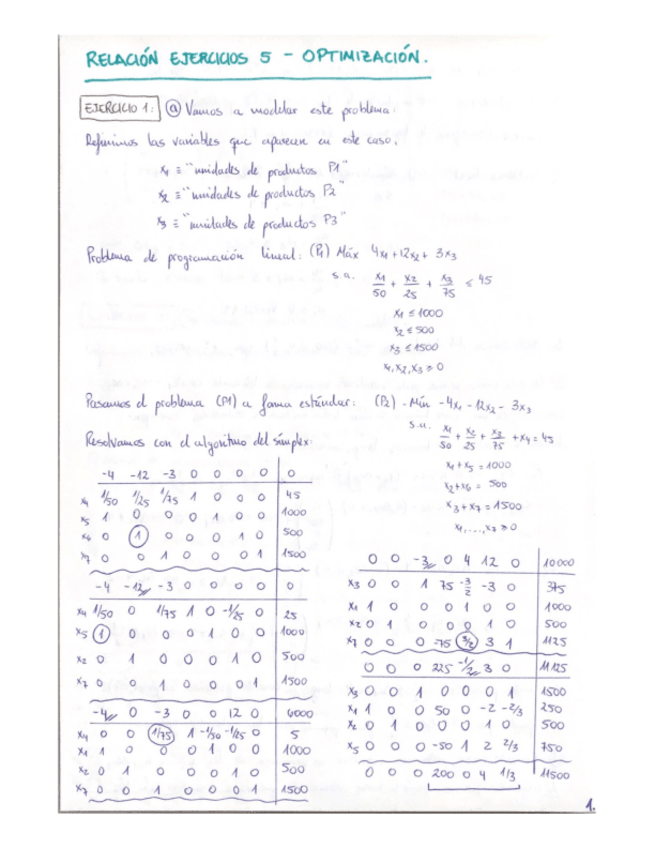 RELACIÓN EJERCICIOS 5 - OPTIMIZACIÓN.
EJERCICIO 1: ⓐ Vamos a modelar este problema.
Definimos las variables que aparecen en este caso.
x₁ ≡ "unidades de productos P1"
x₂ ≡ "unidades de productos P2"
x₃ ≡ "unidades de productos P3"
Problema de programación lineal: (P₁) Máx 4x₁ + 12x₂ + 3x₃
s.a. x₁/50 + x₂/25 + x₃/75 ≤ 45
x₁ ≤ 1000
x₂ ≤ 500
x₃ ≤ 1500
x₁, x₂, x₃ ≥ 0
Pasamos el problema (P1) a forma estándar: (P₂) - Mín -4x₁ - 12x₂ - 3x₃
s.a. x₁/50 + x₂/25 + x₃/75 + x₄ = 45
Resolvamos con el algoritmo del símplex:
x₁ + x₅ = 1000
x₂ + x₆ = 500
x₃ + x₇ = 1500
x₁, ..., x₇ ≥ 0
-4 -12 -3 0 0 0 0 0
x₄ 1/50 1/25 1/75 1 0 0 0 45
x₅ 1 0 0 0 1 0 0 1000
x₆ 0 1 0 0 0 1 0 500
x₇ 0 0 1 0 0 0 1 1500
-4 -12 -3 0 0 0 0 0
x₄ 1/50 0 1/75 1 0 -1/25 0 25
x₅ 1 0 0 0 1 0 0 1000
x₂ 0 1 0 0 0 1 0 500
x₇ 0 0 1 0 0 0 1 1500
-4 0 -3 0 0 12 0 6000
x₄ 0 0 1/75 1 -1/50 -1/25 0 5
x₁ 1 0 0 0 1 0 0 1000
x₂ 0 1 0 0 0 1 0 500
x₇ 0 0 1 0 0 0 1 1500
0 0 -3 0 4 12 0 10000
x₃ 0 0 1 75 -3/2 -3 0 375
x₁ 1 0 0 0 1 0 0 1000
x₂ 0 1 0 0 0 1 0 500
x₇ 0 0 0 -75 3/2 3 1 1125
0 0 0 225 -1/2 3 0 11125
x₃ 0 0 1 0 0 0 1 1500
x₁ 1 0 0 50 0 -2 -2/3 250
x₂ 0 1 0 0 0 1 0 500
x₅ 0 0 0 -50 1 2 2/3 750
0 0 0 200 0 4 1/3 11500
1.